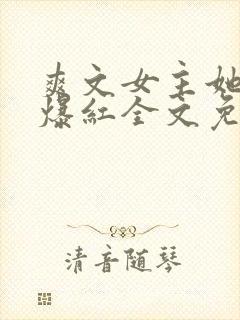 爽文女主她
爆红全文免
清音随琴